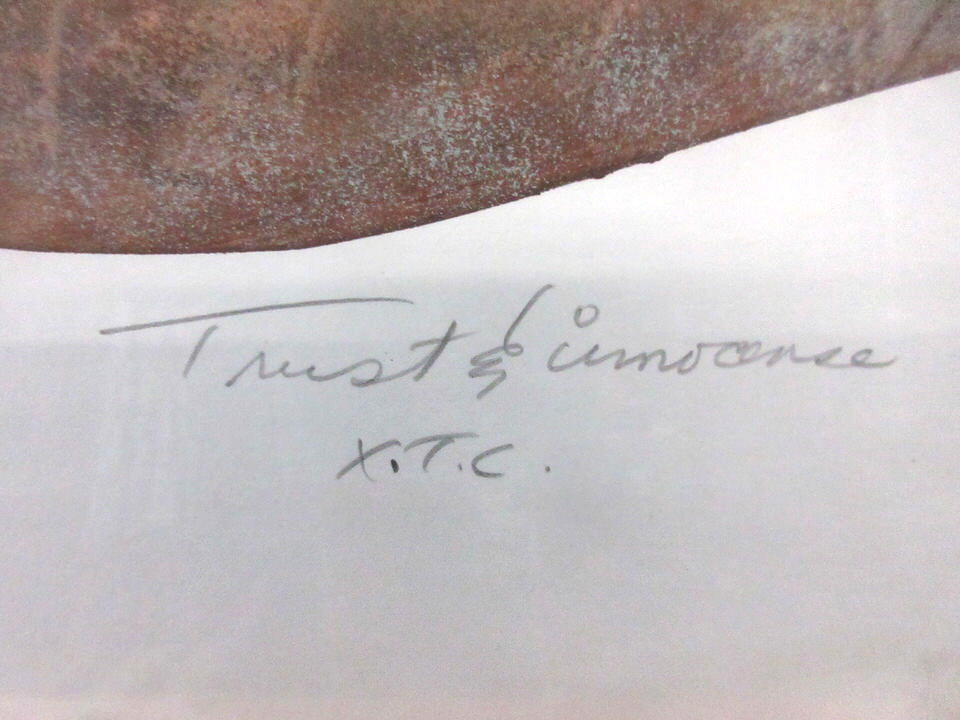 Trust & innocense
X.T.C.